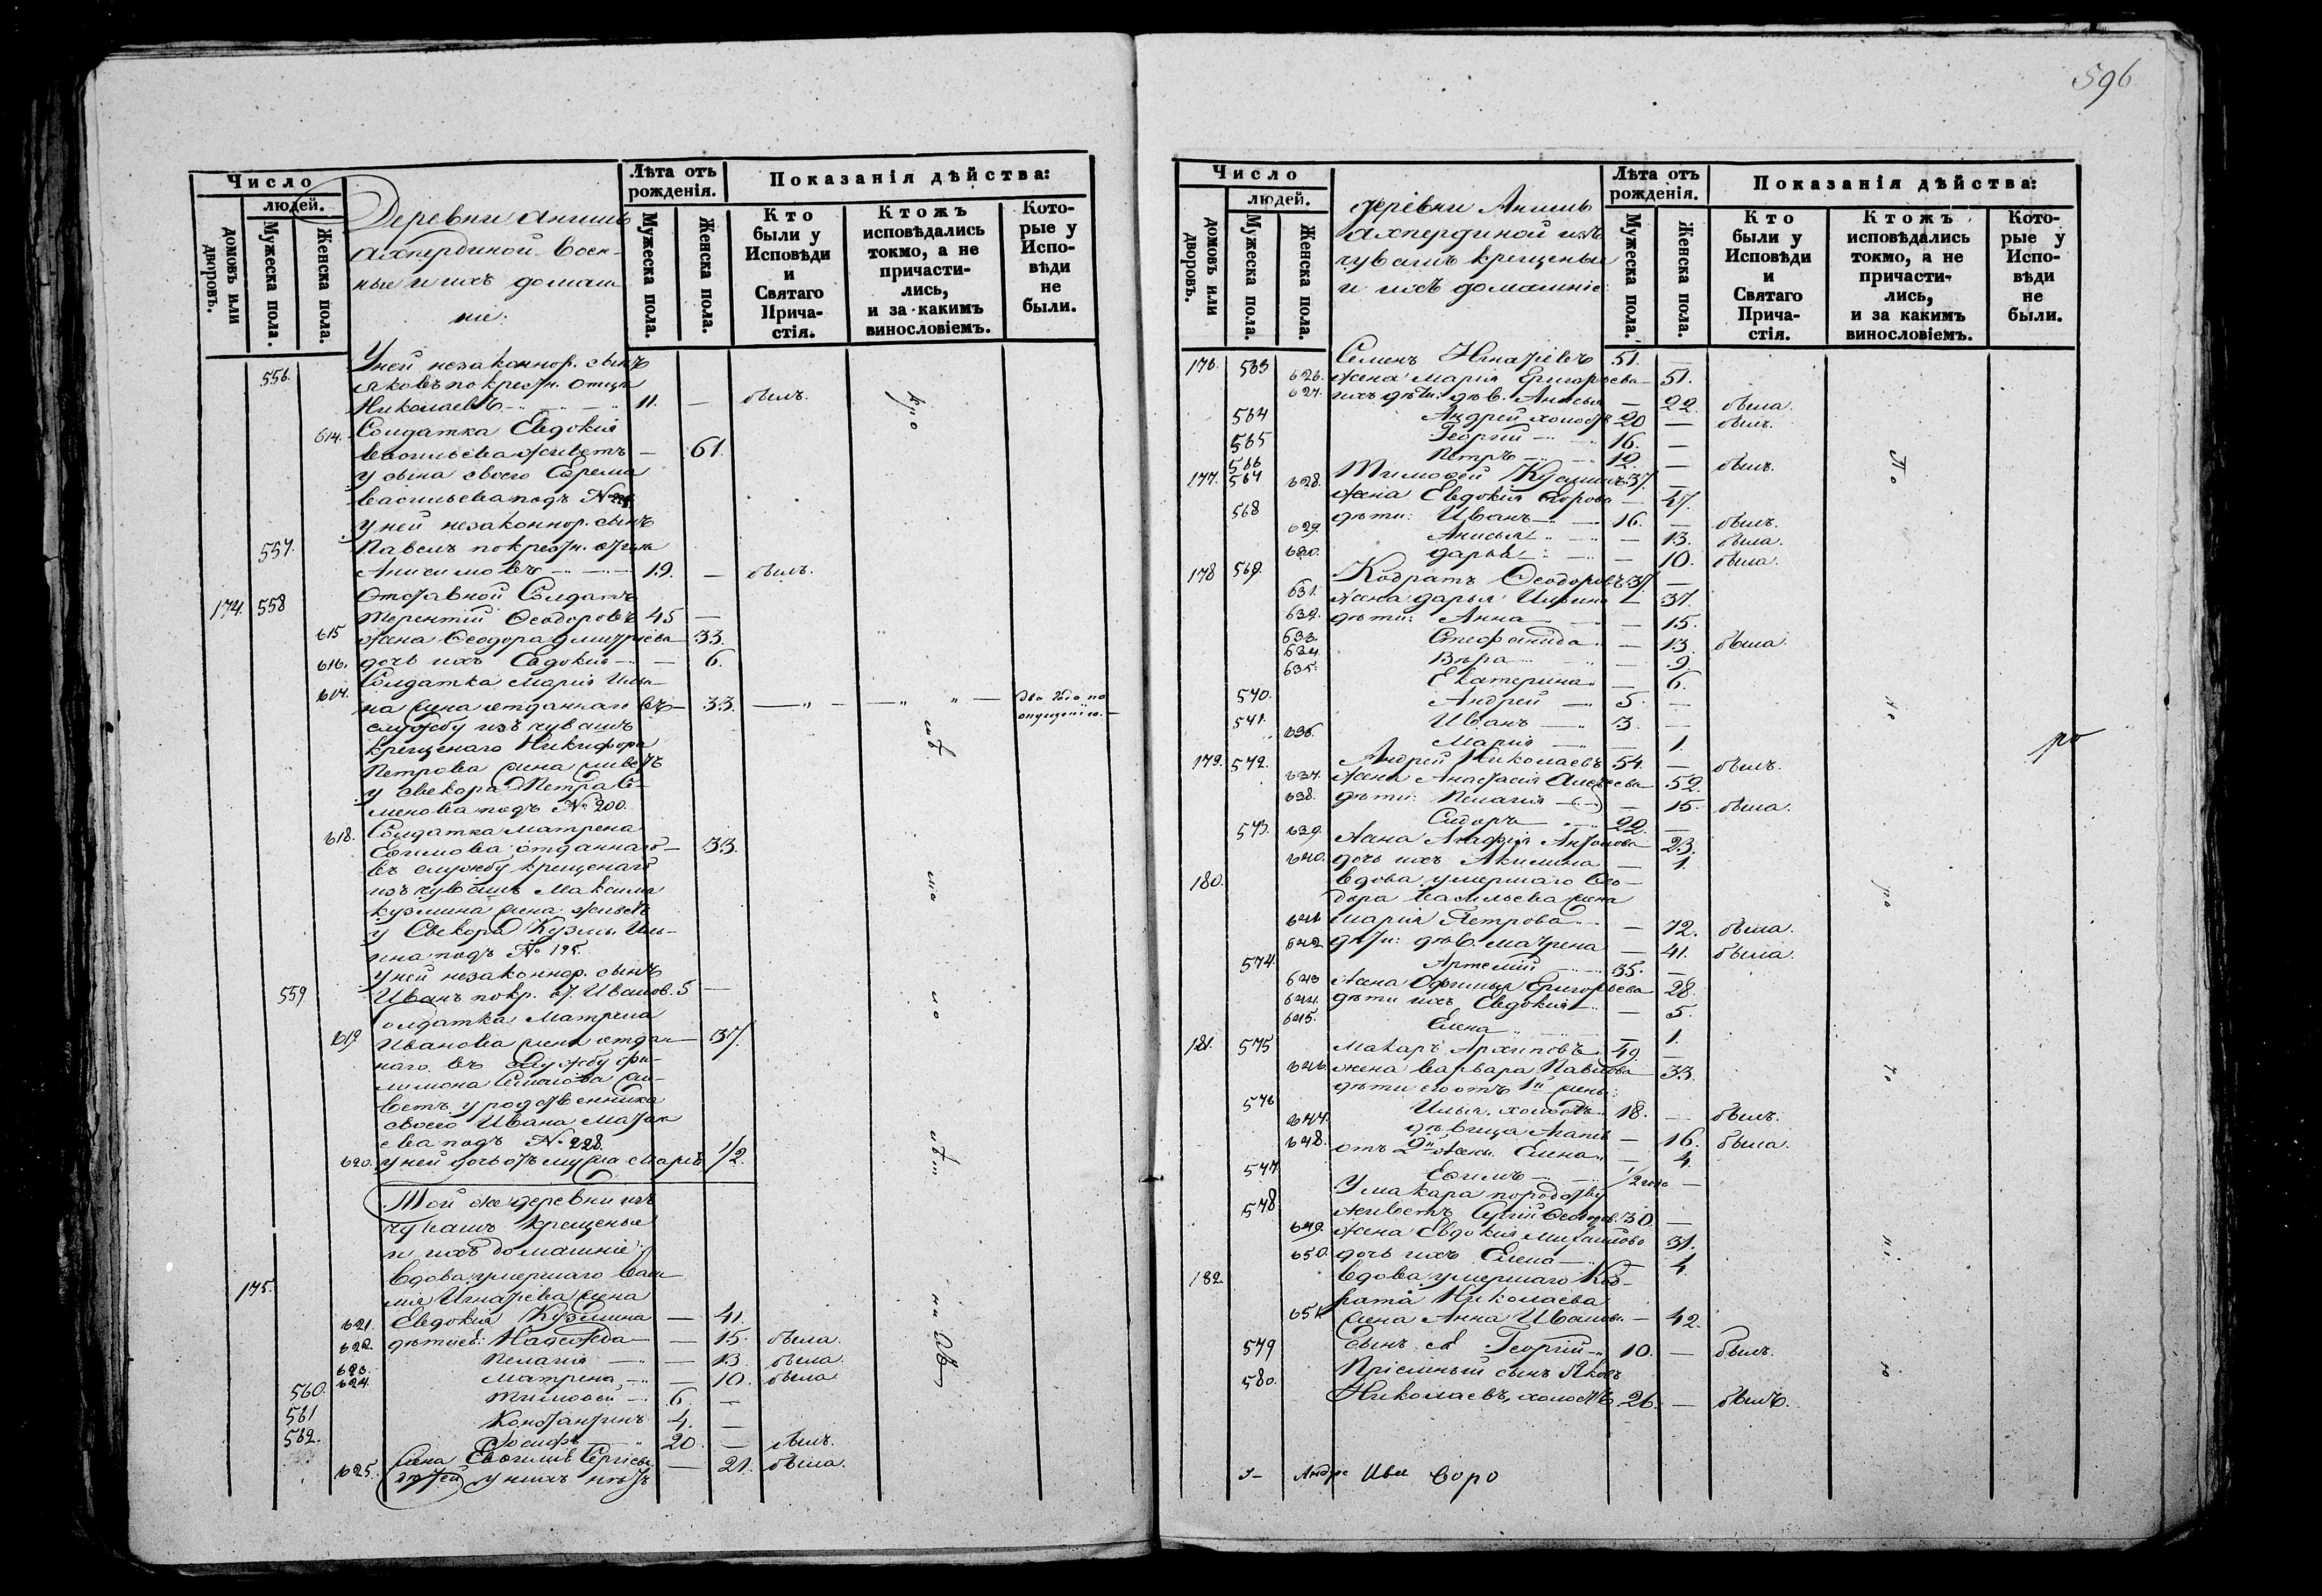 596
Число
людей.
домовъ или дворовъ.
Мужеска пола.
Женска пола.
Деревни Анишъ
Ахпердиной воен-
ные и ихъ домаш
ніе:
Лѣта отъ рожденія.
Мужеска пола.
Женска пола.
Показанія дѣйства:
Кто были у Исповѣди и Святаго Причастія.
Ктожъ исповѣдались токмо, а не причастились, и за какимъ винословіемъ.
Которые у Исповѣди не были.
У ней незаконнор. сынъ
556. Яковъ по крестн. отцѣ
Николаевъ 11. — былъ.
614. Солдатка Евдокия
Васильева живетъ — 61.
у сына своего Ефрема
Васильева подъ №
у ней незаконнор. сынъ
557. Павелъ по крестн. отцѣ
Анисимовъ 19. — былъ.
Отставной Солдатъ
174. 558 Терентій Ѳеодоровъ 45 —
615 жена Ѳеодора Дмитріева 33.
616. дочь ихъ Евдокия — 6.
Солдатка Марія Ильи-
617. на жена отданнаго въ — 33. два года по
опущенію.
службу изъ чувашъ
крещенаго Никифора
Петрова жена живетъ
у свекора Петра Се-
менова подъ № 200.
618. Солдатка Матрена
Ефимова отданнаго — 33.
въ службу крещенаго
изъ чувашъ Максима
Кузмина жена живетъ
у Свекора Кузмы Иль-
ина подъ № 195.
у ней незаконнор. сынъ
559 Иванъ по кр. от. Иванов. 5 —
Солдатка Матрена
619 Иванова жена отдан — 37.
наго въ службу Фи-
лимона Семенова жи-
ветъ у родственника
своего Ивана Матве
ева подъ № 228.
620. у ней дочь отъ мужа Марья 1/2.
Той же деревни изъ
чувашъ крещеные
и ихъ домашніе:
175. Вдова умершаго Васи-
лія Игнатьева жена
621. Евдокия Кузмина — 41.
622. дѣти ев: Надежда — 15. была.
623. Пелагия — 13. была.
624. Матрена — 10. была
560. Тимофей 6. —
561 Константинъ 4. —
562. Іосифъ 20. — былъ.
625. жена Евфимія Сергіева — 21. была.
дѣтей у нихъ нѣтъ
Число
людей.
домовъ или дворовъ.
Мужеска пола.
Женска пола.
деревни Анишъ
Ахпердиной изъ
чувашъ крещеные
и ихъ домашніе:
Лѣта отъ рожденія.
Мужеска пола.
Женска пола.
Показанія дѣйства:
Кто были у Исповѣди и Святаго Причастія.
Ктожъ исповѣдались токмо, а не причастились, и за какимъ винословіемъ.
Которые у Исповѣди не были.
176. 563 Семенъ Игнатіевъ 51. —
626. жена Марія Григорьева — 51.
627. ихъ дѣти: дѣв. Анисья — 22. была.
564 Андрей холостъ 20 — былъ.
565 Георгій 16. —
566 Петръ 12. — былъ.
177. 567 Тимофей Кузминъ 37. —
628. жена Евдокия Егорова — 47.
568 дѣти: Иванъ 16. — былъ.
629. Анисья — 13. была.
630. Дарья — 10. была.
178 569. Кодратъ Ѳеодоровъ 37. —
631. жена Дарья Ильина — 37.
632. дѣти: Анна — 15.
633. Стефанида — 13. была.
634 Вѣра — 9.
635. Екатерина — 6.
570. Андрей 5. —
571. Иванъ 3. —
636. Марія — 1.
179. 572. Андрей Николаевъ 54. — былъ.
637. жена Анастасія Алексѣева 52.
638. дѣти: Пелагия — 15. была.
573. Сидоръ 22. —
639. жена Агафія Антонова 23.
640. дочь ихъ Акилина — 1.
180. Вдова умершаго Ѳео-
дора Васильева жена
641 Марія Петрова — 72. была.
642 дѣти: дѣв. Матрена — 41. была.
574. Артемій 35. —
643 жена Офимья Григорьева 28.
644. дѣти ихъ Евдокия — 5.
645. Елена — 1.
181. 575 Макаръ Архиповъ 49. —
646. жена Варвара Павлова 33.
дѣти его отъ 1й жены:
576 Илья холостъ 18. — былъ.
647. дѣвица Агапія — 16. была.
648. отъ 2й жены Елена — 4.
577. Ефимъ 1/2 года —
У Макара по родству
578 живетъ Ѳеодор. 30. —
649. жена Евдокия Михайлова 31.
650. дочь ихъ Елена — 4
182. Вдова умершаго Код-
рата Николаева
651. жена Анна Иванова — 42.
579 сынъ Георгій 10. — былъ.
580. Пріемный сынъ Яковъ
Николаевъ, холостъ 26. — былъ.
Андре Ива Воро